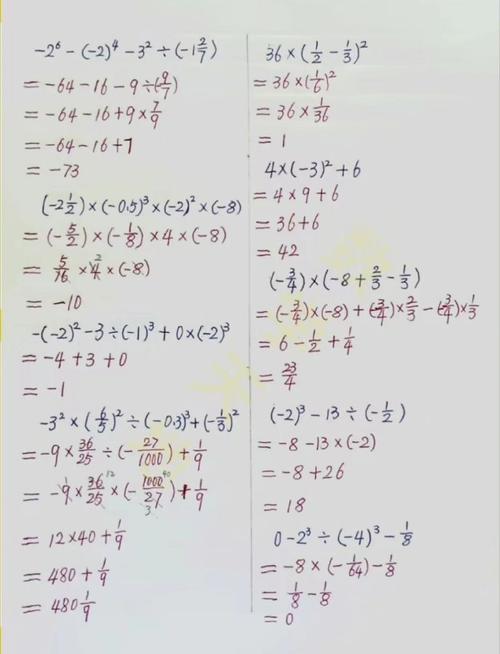 -2⁶-(-2)⁴-3²÷(-1 2/7)
=-64-16-9÷(-9/7)
=-64-16+9×7/9
=-64-16+7
=-73
(-2 1/2)×(-0.5)³×(-2)²×(-8)
=(-5/2)×(-1/8)×4×(-8)
=5/16×4×(-8)
=-10
-(-2)²-3÷(-1)³+0×(-2)³
=-4+3+0
=-1
-3²×(6/5)²÷(-0.3)³+(-1/3)²
=-9×36/25÷(-27/1000)+1/9
=-9×36/25×(-1000/27)+1/9
=12×40+1/9
=480+1/9
=480 1/9
36×(1/2-1/3)²
=36×(1/6)²
=36×1/36
=1
4×(-3)²+6
=4×9+6
=36+6
=42
(-3/4)×(-8+2/3-1/3)
=(-3/4)×(-8)+(-3/4)×2/3-(-3/4)×1/3
=6-1/2+1/4
=23/4
(-2)³-13÷(-1/2)
=-8-13×(-2)
=-8+26
=18
0-2³÷(-4)³-1/8
=-8×(-1/64)-1/8
=1/8-1/8
=0